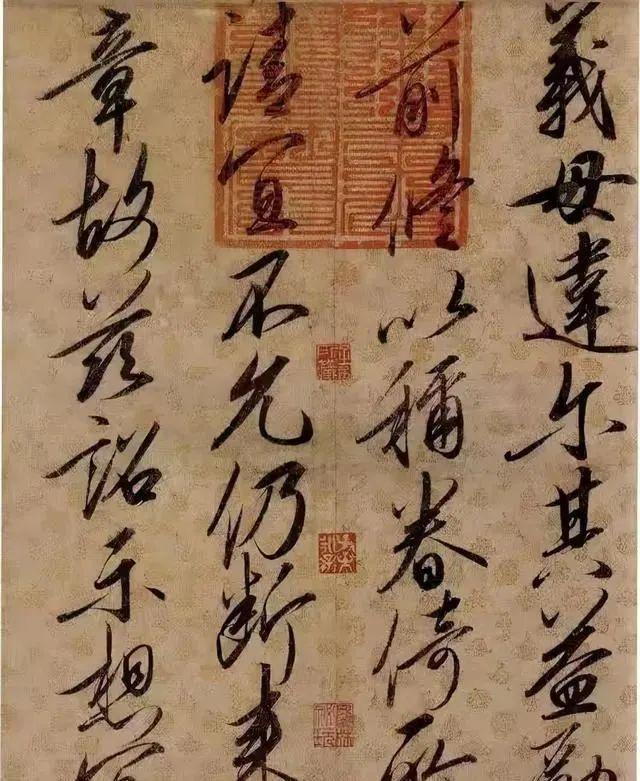 義毋違尔其益
前脩以稱眷倚所
請宜不允仍斷来
章故茲詔示想宜